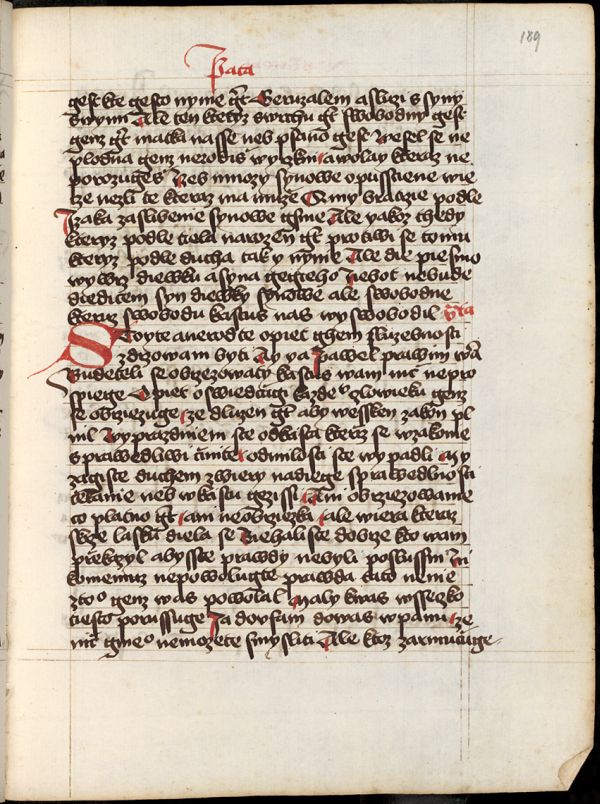 189
Pata
gest kte gesto nynie gt Geruzalem a sluzi s syny
swymi Ale ten kteryz swrchu gt swobodny gest
genz gt matka nasse neb psano gest Wesel se ne
plodna genz nerodis wykrikni a wolay kteraz ne
porozuges Neb mnozy synowe opusstiene wie
ce nezli te kteraz ma muze Ale my bratrzie podle
Izaka zaslibenie synowe gsme Ale yakoz thedy
kteryz podle tiela narozen gt protiwi se tomu
kteryz podle ducha tak y nynie Ale die piesmo
wywrz diewku a syna gegieho Nebot nebude
diedicem syn diewky synowe ale swobodne
kteruz swobodu kristus nas wyswobodil
Stoyte a nerodte opiet ghem sluzebnosti
zdrzowani byti Ay ya Pawel prawim wa
Budeteli se obrzezowaty kristus wam nic nepro
spiege Opiet oswiedcugi kazde clowieku genz
se obrziezuge ze dluzen gt aby wessken zakon pl
nil Wyprazdnieni ste od krista kteraz se w zakonie
sprawedliwi cinite od milosti ste wypadli My
zagiste duchem z wiery nadiege sprawedlnosti
cekame neb w kristu gezissi Ani obrziezowanie
co platno gt ani neobrziezka ale wiera kteraz
skrze lasku diela se Biehali ste dobrze kto wam
prziekazyl abysste prawdy nebyli poslussni Ni
komemuz nepowolugte prawda tato nenie
z to genz was powolal Maly kwas wssecko
tiesto porussuge Ja dovfam do was w panu ze
nic gine nemozete smysliti Ale ktoz zarmucuge